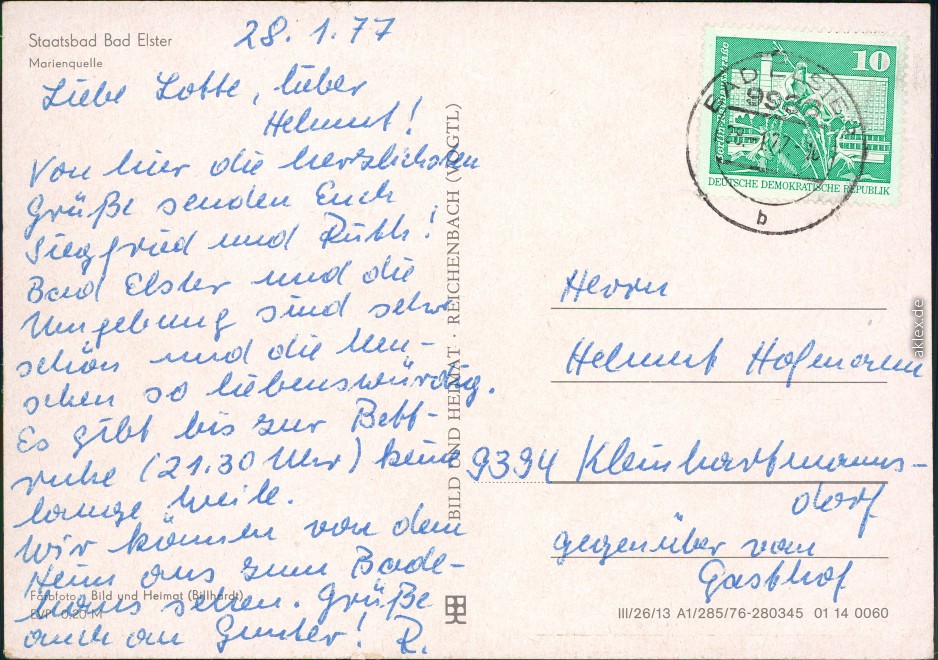 Staatsbad Bad Elster
Marienquelle
28.1.77
Liebe Lotte, lieber
Helmut!
Von hier die herzlichsten
Grüße senden Euch
Siegfried und Ruth!
Bad Elster und die
Umgebung sind sehr
schön und die Men-
schen so liebenswürdig.
Es gibt bis zur Bett-
ruhe (21.30 Uhr) keine
lange Weile.
Wir können von dem
Heim aus zum Bade-
haus sehen. Grüße
auch an Gunter! R.
Farbfoto: Bild und Heimat (Billhardt)
EVP 0,20 M
BILD UND HEIMAT · REICHENBACH (VOGTL)
10
DEUTSCHE DEMOKRATISCHE REPUBLIK
BAD ELSTER
b
Herrn
Helmut Hofmann
9394 Kleinhartmanns-
dorf
gegenüber vom
Gasthof
III/26/13 A1/285/76-280345 01 14 0060
aklex.de